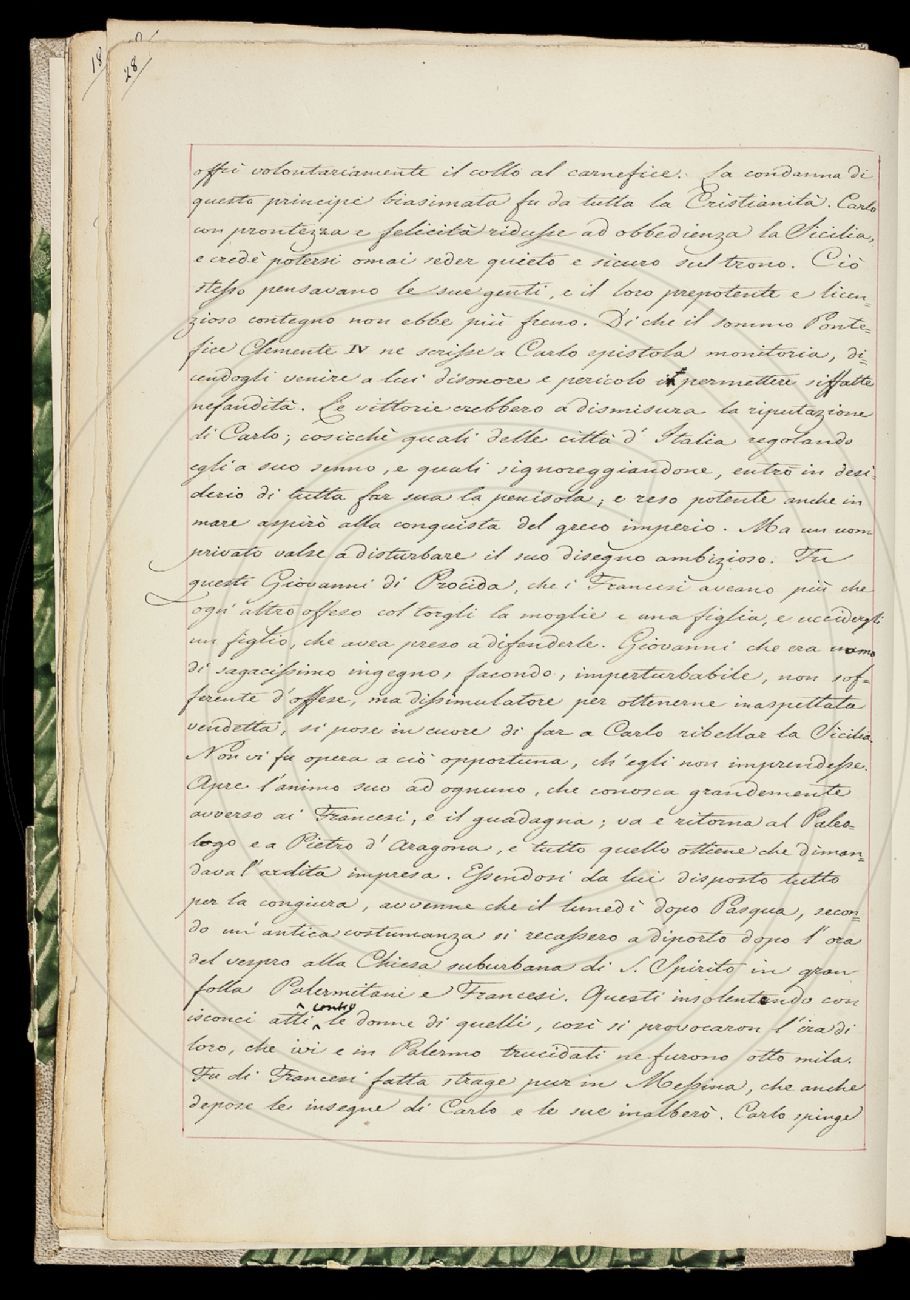 18
28
offrì volontariamente il collo al carnefice. La condanna di
questo principe biasimata fu da tutta la Cristianità. Carlo
con prontezza e felicità ridusse ad obbedienza la Sicilia,
e crede potersi omai seder quieto e sicuro sul trono. Ciò
stesso pensavano le sue genti, e il loro prepotente e licen=
zioso contegno non ebbe più freno. Di che il sommo Ponte=
fice Clemente IV ne scrisse a Carlo epistola monitoria, di=
cendogli venire a lui disonore e pericolo il permettere siffatte
nefandità. Le vittorie crebbero a dismisura la riputazione
di Carlo; cosicchè quali delle città d'Italia regolando
egli a suo senno, e quali signoreggiandone, entrò in desi=
derio di tutta far sua la penisola; e reso potente anche in
mare aspirò alla conquista del greco imperio. Ma un uom
privato valse a disturbare il suo disegno ambizioso. Fu
questi Giovanni di Procida, che i Francesi aveano più che
ogn'altro offeso col torgli la moglie e una figlia, e uccidergli
un figlio, che avea preso a difenderle. Giovanni che era uomo
di sagacissimo ingegno, facondo, imperturbabile, non sof=
ferente d'offese, ma dissimulatore per ottenerne inaspettata
vendetta, si pose in cuore di far a Carlo ribellar la Sicilia.
Non vi fu opera a ciò opportuna, ch'egli non imprendesse.
Apre l'animo suo ad ognuno, che conosca grandemente
avverso ai Francesi, e il guadagna; va e ritorna al Paleo=
logo e a Pietro d'Aragona, e tutto quello ottiene che diman=
dava l'ardita impresa. Essendosi da lui disposto tutto
per la congiura, avvenne che il lunedì dopo Pasqua, secon=
do un'antica costumanza si recassero a diporto dopo l'ora
del vespro alla Chiesa suburbana di S. Spirito in gran
folla Palermitani e Francesi. Questi insolentendo con
isconci atti contro le donne di quelli, così si provocaron l'ira di
loro, che ivi e in Palermo trucidati ne furono otto mila.
Fu di Francesi fatta strage pur in Messina, che anche
depose le insegne di Carlo e le sue inalberò. Carlo spinge